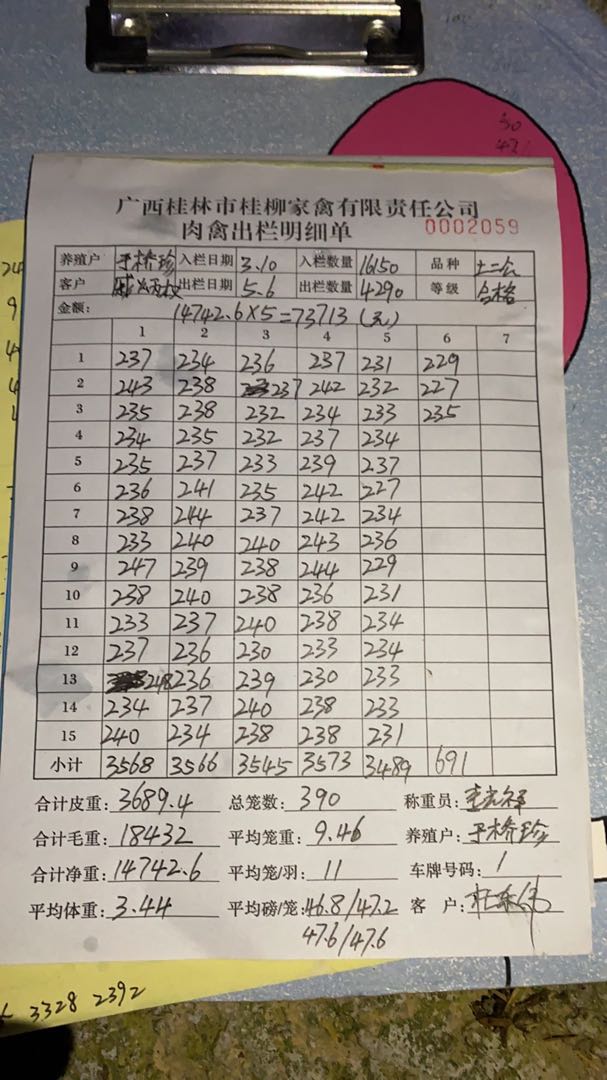 50
广西桂林市桂柳家禽有限责任公司
肉禽出栏明细单 0002059
养殖户 于桥珍 入栏日期 3.10 入栏数量 16150 品种 土二公
客户 出栏日期 5.6 出栏数量 4290 等级 合格
金额: 14742.6×5=73713(元)
1 2 3 4 5 6 7
1 237 234 236 237 231 229
2 243 238 237 242 232 227
3 235 238 232 234 233 235
4 234 235 232 237 234
5 235 237 233 239 237
6 236 241 235 242 227
7 238 244 237 242 234
8 233 240 240 243 236
9 247 239 238 244 229
10 238 240 238 236 231
11 233 237 240 238 234
12 237 236 230 233 234
13 248 236 239 230 233
14 234 237 240 238 233
15 240 234 238 238 231
小计 3568 3566 3545 3573 3489 691
合计皮重: 3689.4 总笼数: 390 称重员:
合计毛重: 18432 平均笼重: 9.46 养殖户: 于桥珍
合计净重: 14742.6 平均笼/羽: 11 车牌号码: 1
平均体重: 3.44 平均磅/笼: 46.8/47.2 客 户:
47.6/47.6
3328 2392